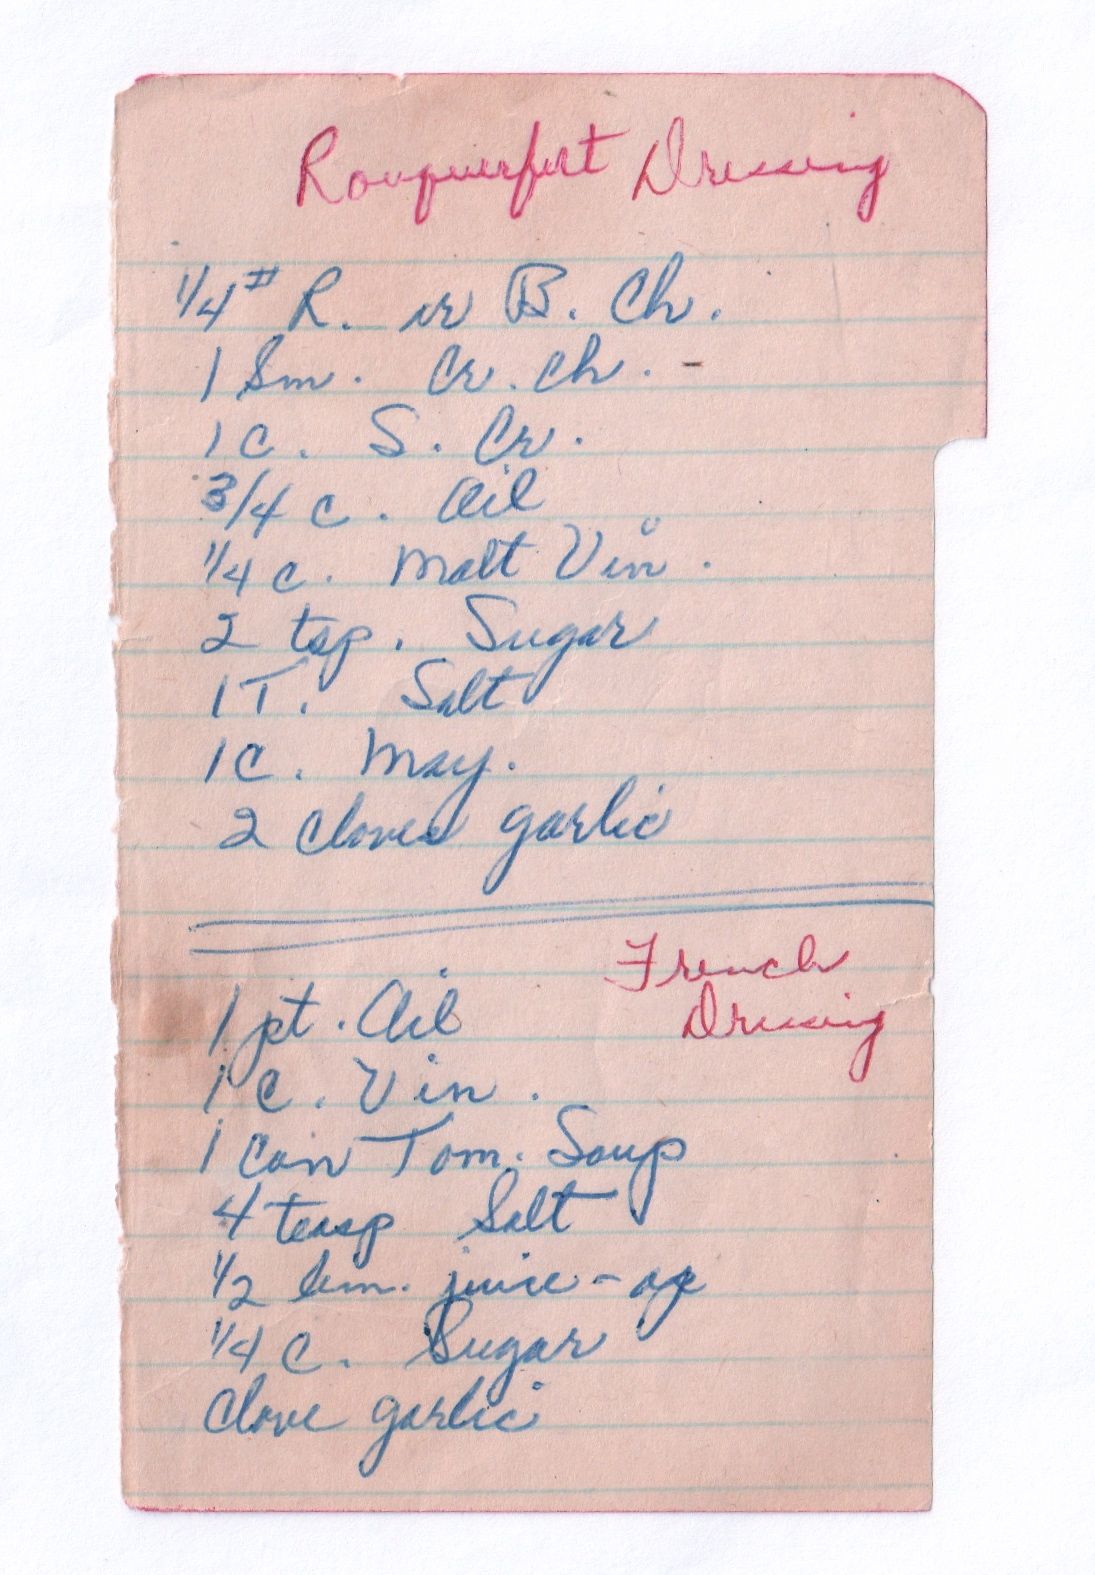 Rouquerfert Dressing
1/4# R. or B. Ch.
1 Sm. Cr. Ch. -
1 C. S. Cr.
3/4 C. Oil
1/4 C. Malt Vin.
2 tsp. Sugar
1 T. Salt
1 C. May.
2 Cloves garlic
French
Dressing
1 pt. Oil
1 C. Vin.
1 Can Tom. Soup
4 teasp Salt
1/2 lem. juice -
1/4 C. Sugar
Clove garlic